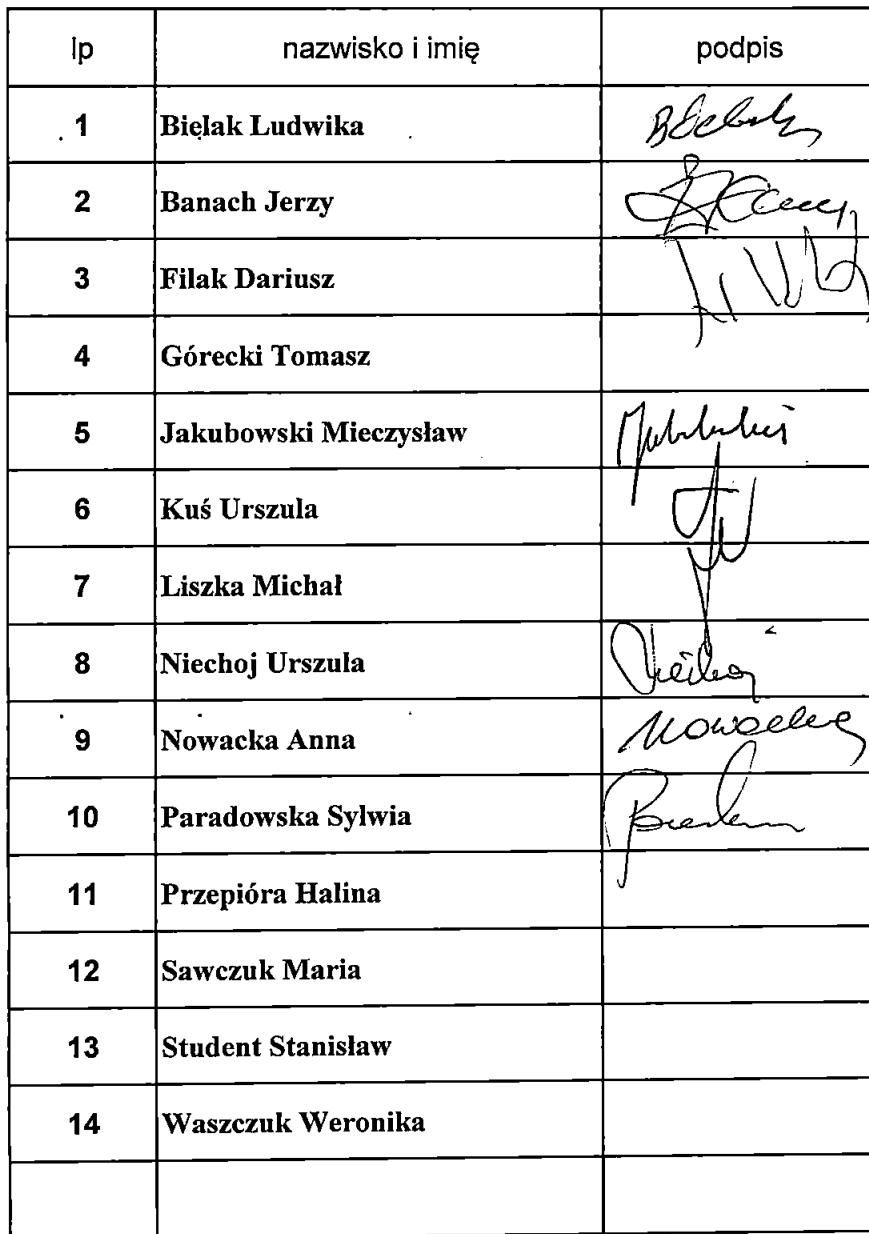 lp nazwisko i imię podpis
1 Bielak Ludwika
2 Banach Jerzy
3 Filak Dariusz
4 Górecki Tomasz
5 Jakubowski Mieczysław
6 Kuś Urszula
7 Liszka Michał
8 Niechoj Urszula
9 Nowacka Anna Nowacka
10 Paradowska Sylwia
11 Przepióra Halina
12 Sawczuk Maria
13 Student Stanisław
14 Waszczuk Weronika